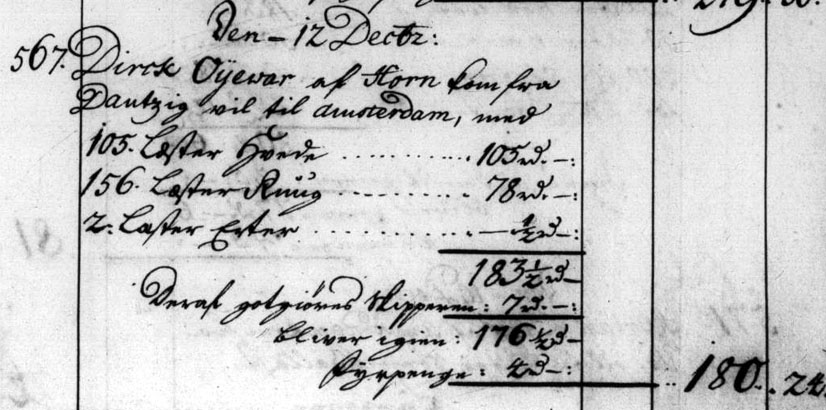 Den - 12 Decbr:
567. Dirck Oÿevar af Horn kom fra
Dantzig vil til amsterdam, med
105. Læster Hvede .......... 105 rd. -:
156. Læster Ruug .......... 78 rd. -:
2. Læster Erter .......... - ½ rd -:
183 ½ rd -
Deraf gotgiöres Skipperen: 7 rd. -:
bliver igien: 176 ½ rd -
Fÿrpenge: 4 rd -: .. 180. 24.